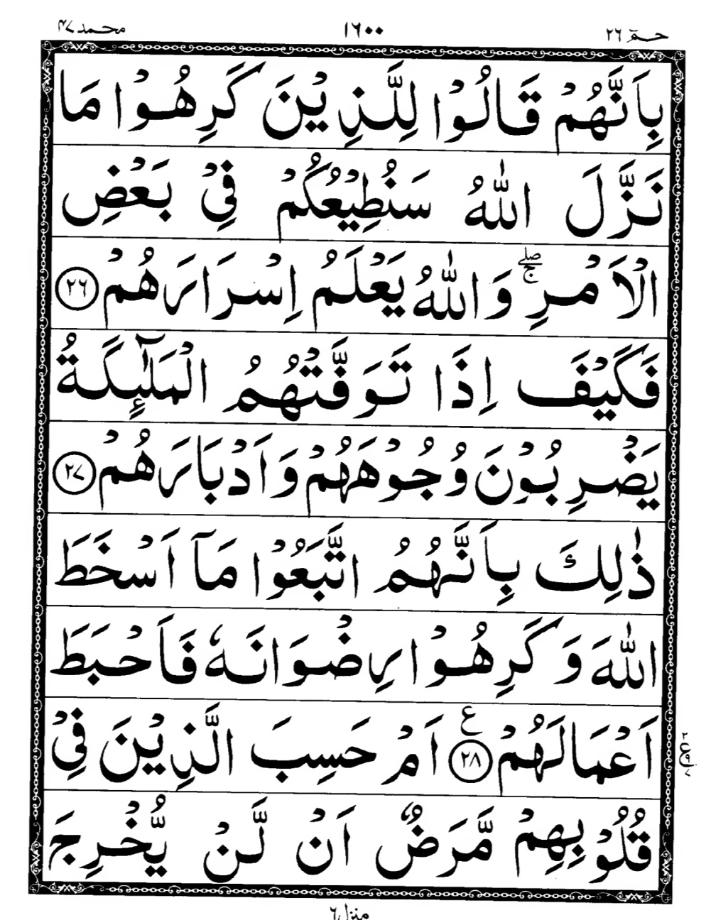 حٰـمٓ ٢٦ ١٦٠٠ محمد ٤٧
بِاَنَّهُمْ قَالُوْا لِلَّذِيْنَ كَرِهُوْا مَا
نَزَّلَ اللّٰهُ سَنُطِيْعُكُمْ فِيْ بَعْضِ
الْاَمْرِ ۖۚ وَاللّٰهُ يَعْلَمُ اِسْرَارَهُمْ ٢٦
فَكَيْفَ اِذَا تَوَفَّتْهُمُ الْمَلٰٓئِكَةُ
يَضْرِبُوْنَ وُجُوْهَهُمْ وَاَدْبَارَهُمْ ٢٧
ذٰلِكَ بِاَنَّهُمُ اتَّبَعُوْا مَآ اَسْخَطَ
اللّٰهَ وَكَرِهُوْا رِضْوَانَهٗ فَاَحْبَطَ
اَعْمَالَهُمْ ٢٨ ع اَمْ حَسِبَ الَّذِيْنَ فِيْ
قُلُوْبِهِمْ مَّرَضٌ اَنْ لَّنْ يُّخْرِجَ
منزل ٦